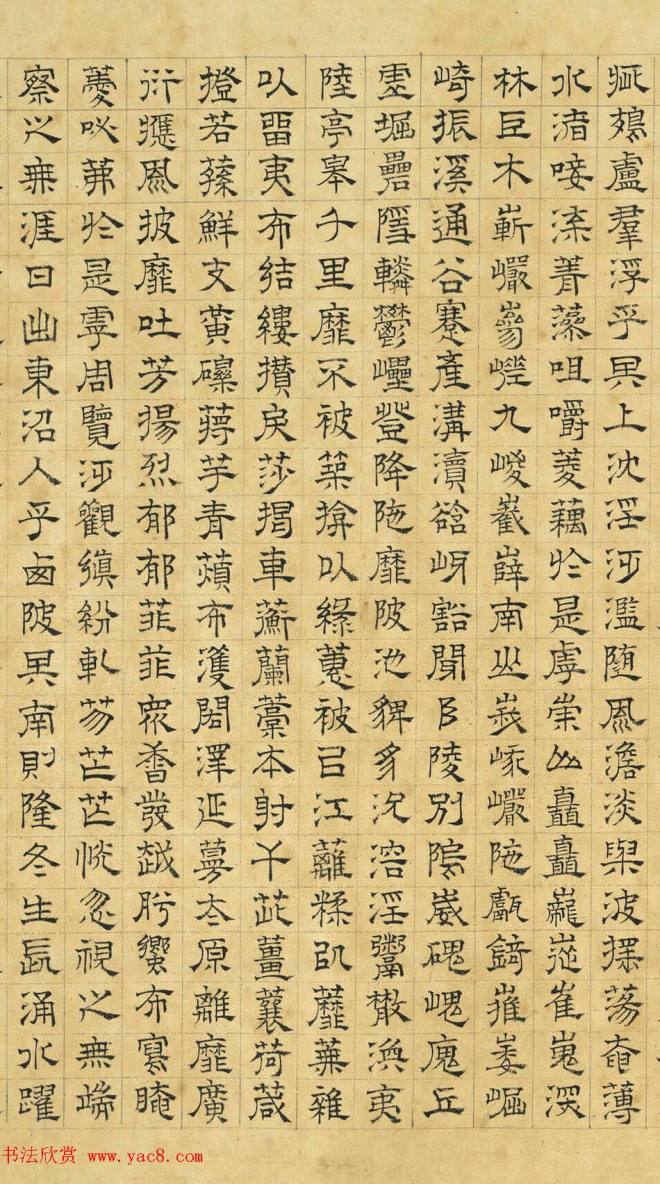 疵鵁盧羣浮乎其上沈淫汎濫随風澹淡與波揺蕩奄薄
水渚唼渿菁藻咀嚼菱藕於是虖崇山矗矗巃嵸崔嵬深
林巨木嶄巗嵾嵯九嵕巀嶭南山峩峨巗陁甗錡嶊崣崛
崎振溪通谷蹇產溝瀆谽岈豁閜阜陵別隝崴磈嵬廆丘
虛堀礨隱轔鬱㠥登降陁靡陂池貏豸沇溶淫鬻散渙夷
陸亭皋千里靡不被築揜以綠蕙被以江蘺糅以蘪蕪雜
以留夷布結縷攢戾莎揭車蘅蘭藁本射干茈薑蘘荷葴
橙若蓀鮮支黃礫蔣芧青薠布濩閎澤延蔓太原離靡廣
衍應風披靡吐芳揚烈郁郁菲菲衆香發越肸蠁布寫晻
薆咇茀於是虖周覽汎觀縝紛軋芴芒芒怳忽視之無端
察之無涯日出東沼入乎西陂其南則隆冬生長涌水躍
书法欣赏 www.yac8.com